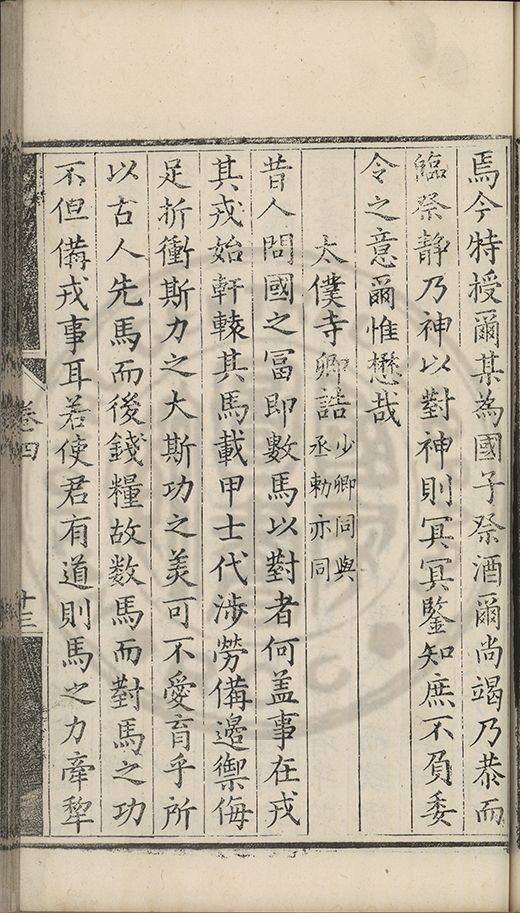 焉今特授爾某為國子祭酒爾尚竭乃恭而
臨祭静乃神以對神則冥冥鑒知庶不負委
令之意爾惟懋哉
太僕寺卿誥少卿同與丞勅亦同
昔人問國之冨即數馬以對者何盖事在戎
其戎始軒轅其馬載甲士代渉勞備邊禦侮
足折衝斯力之大斯功之羙可不愛育乎所
以古人先馬而後錢糧故数馬而對馬之功
不但備戎事耳若使君有道則馬之力牽犂
卷四
十三